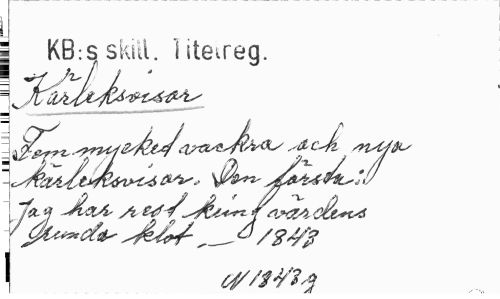 KB:s skill. Titelreg.
Kärleksvisor
Fem mycket vackra och nya
kärleksvisor. Den första:
Jag har rest kring värdens
runda klot, — 1843
N 1843 g